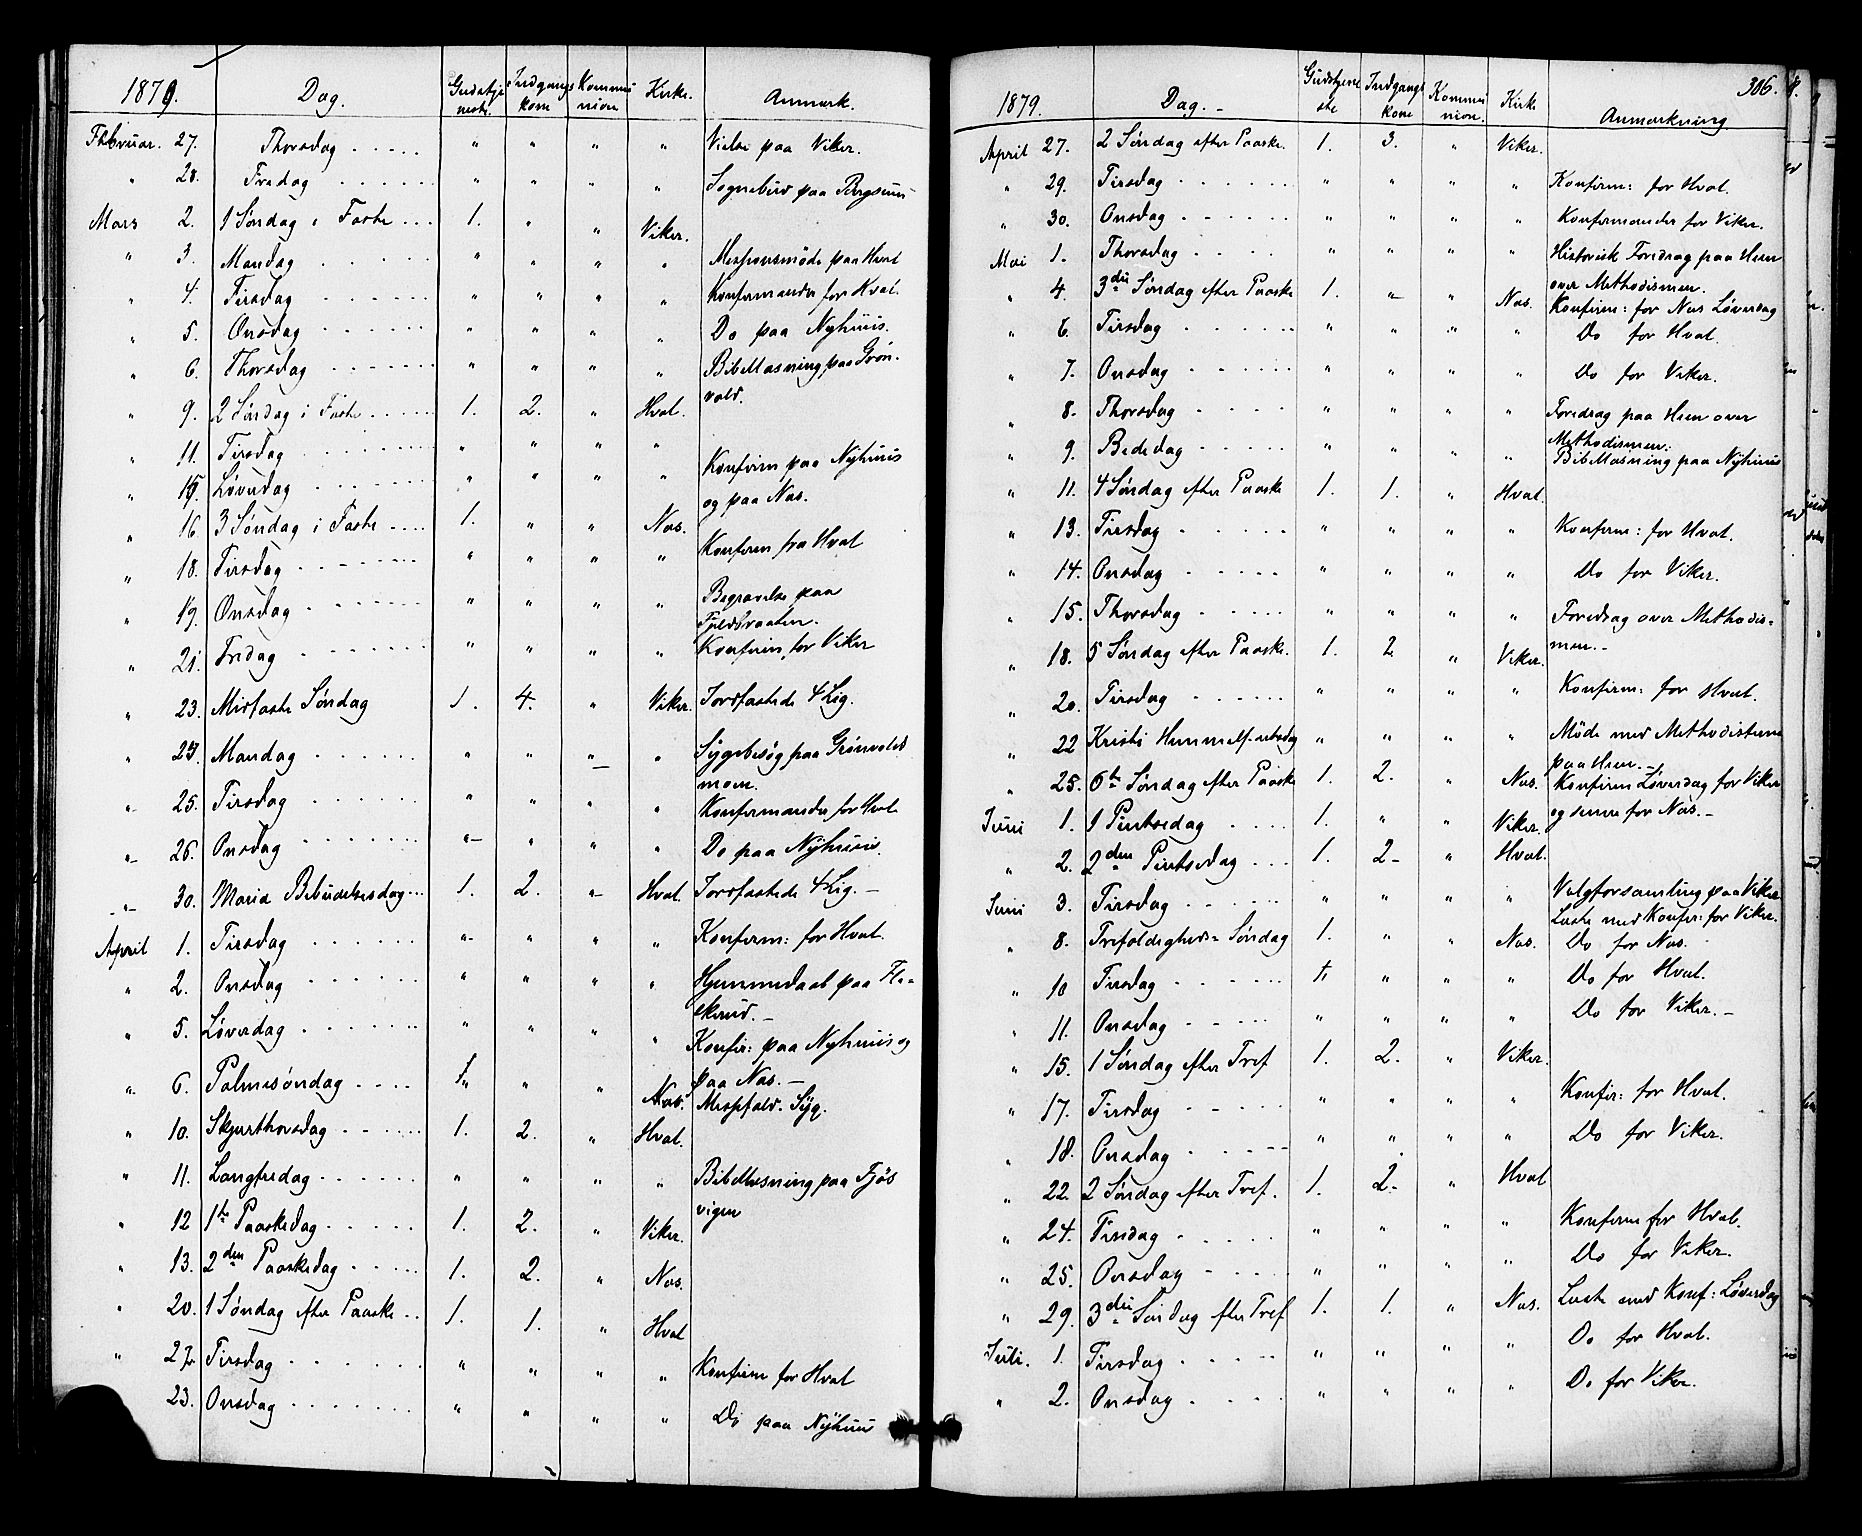 1879. Dag. Gudstje Indgangs Kommu Kirke. Anmærk.
neste. kone nion
Februar. 27. Thorsdag . . . . . " " " " Vielse paa Viker.
" 28. Fredag . . . . . " " " " Sognebud paa Bergsund
Mars 2. 1 Søndag i Faste . . . 1. " " Viker.
" 3. Mandag . . . . . " " " " Missionsmöde paa Hval
" 4. Tirsdag . . . . . " " " " Konfirmander for Hval.
" 5. Onsdag . . . . . " " " " Do paa Nyhuus.
" 6. Thorsdag . . . . . " " " " Bibellæsning paa Grøn-
vold.
" 9. 2 Søndag i Faste . . . . 1. 2. " Hval.
" 11. Tirsdag . . . . . " " " "
" 15. Løverdag . . . . . " " " " Konfirm paa Nyhuus
og paa Næs.
" 16. 3 Søndag i Faste . . . . 1. " " Næs.
" 18. Tirsdag . . . . . " " " " Konfirm fra Hval
" 19. Onsdag . . . . . " " " " Begravelse paa
" 21. Fredag . . . . . " " " " Konfirm. for Viker
" 23. Midfaste Søndag 1. 4. " Viker. Jordfæstede 4 Lig.
" 24. Mandag . . . . . " " " " Sygebesøg paa Grønvold
moen.
" 25. Tirsdag . . . . . " " " " Konfirmander for Hval
" 26. Onsdag . . . . . " " " " Do paa Nyhuus.
" 30. Mariæ Bebudelsesdag . . . 1. 2. " Hval. Jordfæstede 4 Lig. –
April 1. Tirsdag . . . . . " " " " Konfirm: for Hval.
" 2. Onsdag . . . . . " " " " Hjemmedaab paa Fla-
skerud. –
" 5. Løverdag . . . . . " " " " Konfir: paa Nyhuus og
paa Næs. –
" 6. Palmesøndag . . . . " " " Næs. Messefald. Syg.
" 10. Skjærthorsdag . . . . . 1. 2. " Hval.
" 11. Langfredag . . . . . " " " " Bibellæsning paa Fjøs
vigen
" 12 1te Paaskedag . . . . . 1. 2. " Viker.
" 13. 2den Paaskedag . . . . . 1. 2. " Næs.
" 20. 1 Søndag efter Paaske . . 1. 1. " Hval
" 22 Tirsdag . . . . . " " " " Konfirm for Hval
23. Onsdag . . . . . " " " " Do paa Nyhuus
306.
1879. Dag. – Gudstjene Indgangs Kommu Kirke Anmærkning
ste kone nion.
April 27. 2 Søndag efter Paaske. 1. 3. " Viker.
" 29. Tirsdag . . . . . " " " " Konfirm: for Hval.
" 30. Onsdag . . . . . " " " " Konfirmander for Viker.
Mai 1. Thorsdag . . . . . " " " " Historisk Foredrag paa Hem
over Methodismen.
" 4. 3die Søndag efter Paaske 1. " " Næs. Konfirm: for Næs Løverdag
" 6. Tirsdag . . . . . " " " " Do for Hval.
" 7. Onsdag . . . . . " " " " Do for Viker.
" 8. Thorsdag . . . . . " " " " Foredrag paa Hem over
Methodismen.
" 9. Bededag . . . . . " " " " Bibellæsning paa Nyhuus
" 11. 4 Søndag efter Paaske 1. 1. " Hval.
" 13. Tirsdag . . . . . " " " " Konfirm: for Hval.
" 14. Onsdag . . . . . " " " " Do for Viker.
" 15. Thorsdag . . . . . " " " " Foredrag over Methodis-
men. –
" 18. 5 Søndag efter Paaske. 1. 2. " Viker.
" 20. Tirsdag . . . . . " " " " Konfirm: for Hval.
" 22 Kristi Himmelfartsdag " " " " Möde med Methodisterne
paa Hem. –
" 25. 6te Søndag efter Paaske 1. 2. " Næs. Konfirm Løverdag for Viker
og senere for Næs. –
Juni 1. 1 Pintsedag . . . . 1. " " Viker.
" 2. 2den Pintsedag . . . 1. 2 " Hval.
Juni 3. Tirsdag . . . . . " " " " Valgforsamling paa Viker
Læste med Konfir: for Viker.
" 8. Trefoldigheds= Søndag 1. " " Næs. Do for Næs.
" 10 Tirsdag . . . . . " " " " Do for Hval.
" 11. Onsdag . . . . . " " " " Do for Viker. –
" 15. 1 Søndag efter Tref 1. 2. " Viker.
" 17. Tirsdag . . . . . " " " " Konfir: for Hval.
" 18. Onsdag . . . . . " " " " Do for Viker.
" 22. 2 Søndag efter Tref. 1. 2. " Hval
" 24. Tirsdag . . . . . " " " " Konfirm for Hval.
" 25. Onsdag . . . . . " " " " Do for Viker.
" 29. 3die Søndag efter Tref 1. 1. " Næs. Læste med Konf: Løverdag
Juli. 1. Tirsdag . . . . . " " " " Do for Hval.
" 2. Onsdag . . . . . " " " " Do for Viker.